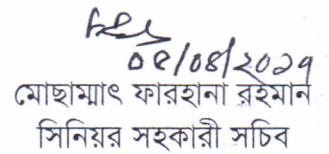 ০৫/০৪/২০১৭
মোছাম্মাৎ ফারহানা রহমান
সিনিয়র সহকারী সচিব